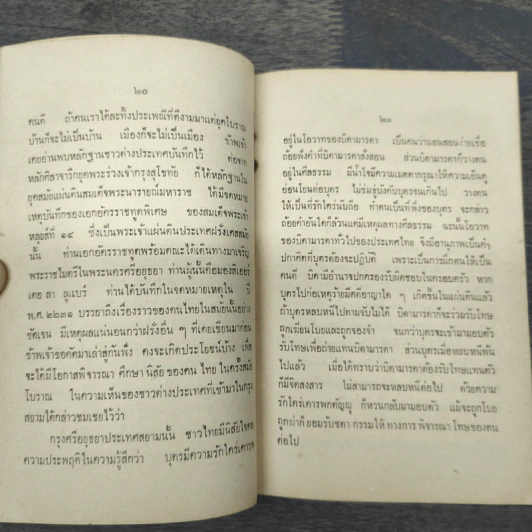 ๒๐
คนดี ถ้าคนเราได้ละทิ้งประเพณีที่ดีงามมาแต่ยุคโบราณ
บ้านก็จะไม่เป็นบ้าน เมืองก็จะไม่เป็นเมือง ข้าพเจ้า
เคยอ่านพบหลักฐานชาวต่างประเทศบันทึกไว้ ต่อจาก
หลักศิลาจารึกยุคพระร่วงเจ้ากรุงสุโขทัย ก็ได้หลักฐานใน
ยุคสมัยแผ่นดินสมเด็จพระนารายณ์มหาราช ได้มีจดหมาย
เหตุบันทึกของเอกอัครราชทูตพิเศษ ของสมเด็จพระเจ้า
หลุยส์ที่ ๑๔ ซึ่งเป็นพระเจ้าแผ่นดินประเทศฝรั่งเศสสมัย
นั้น ท่านเอกอัครราชทูตพร้อมคณะได้เดินทางมาเจริญ
พระราชไมตรีในพระนครศรีอยุธยา ท่านผู้นั้นคือมองสิเออร์
เดอ ลา ลูแบร์ ท่านได้บันทึกในจดหมายเหตุใน ปี
พ.ศ. ๒๒๓๑ บรรยายถึงเรื่องราวของคนไทยในสมัยนั้นอย่าง
ชัดเจน มีเหตุผลแน่นอนกว่าฝรั่งอื่น ๆ ที่เคยเขียนมาก่อน
ข้าพเจ้าขอคัดมาเล่าสู่กันฟัง คงจะเกิดประโยชน์บ้าง เพื่อ
จะได้มีโอกาสพิจารณา ศึกษา นิสัย ของคน ไทย ในครั้งสมัย
โบราณ ในความเห็นของชาวต่างประเทศที่เข้ามาในกรุง
สยามได้กล่าวชมเชยไว้ว่า
กรุงศรีอยุธยาประเทศสยามนั้น ชาวไทยมีนิสัยใจคอ
ความประพฤติในความรู้สึกว่า บุตรมีความรักใคร่เคารพ
๒๑
อยู่ในโอวาทของบิดามารดา เป็นคนว่านอนสอนง่ายเชื่อ
ถ้อยฟังคำที่บิดามารดาสั่งสอน ส่วนบิดามารดาก็วางตน
อยู่ในศีลธรรม มีน้ำใจมีความเมตตากรุณาให้ความเอ็นดู
อ่อนโยนต่อบุตร ไม่ข่มขู่บังคับบุตรจนเกินไป วางตน
ให้เป็นที่รักใคร่นับถือ ทำตนเป็นที่พึ่งของบุตร จะกล่าว
ถ้อยคำอันใดก็ล้วนแต่มีเหตุผลทางศีลธรรม ฉะนั้นโอวาท
ของบิดามารดาทั่วไปของประเทศไทย จึงมีอานุภาพเป็นคำ
ปกาศิตที่บุตรต้องจะปฏิบัติ เพราะเป็นการฝึกตนได้เป็น
คนดี บิดามีอำนาจปกครองรับผิดชอบในครอบครัว หาก
บุตรไปก่อเหตุร้ายมีคดีอาญาใด ๆ เกิดขึ้นในแผ่นดินแล้ว
ถ้าบุตรหลบหนีไปตามจับไม่ได้ บิดามารดาก็จะร่วมรับโทษ
ถูกเฆี่ยนโบยและถูกจองจำ จนกว่าบุตรจะเข้ามามอบตัว
รับโทษเพื่อถ่ายแทนบิดามารดา ส่วนบุตรเมื่อหลบหนีพ้น
ไปแล้ว เมื่อได้ทราบว่าบิดามารดาต้องรับโทษแทนตัว
ก็มีจิตสงสาร ไม่สามารถจะหลบหนีต่อไป ด้วยความ
รักใคร่เคารพกตัญญู ก็หวนกลับมามอบตัว แม้จะถูกโบย
ถูกฆ่าก็ ยอมรับชตา กรรมให้ ทางการ พิจารณา โทษของตน
ต่อไป